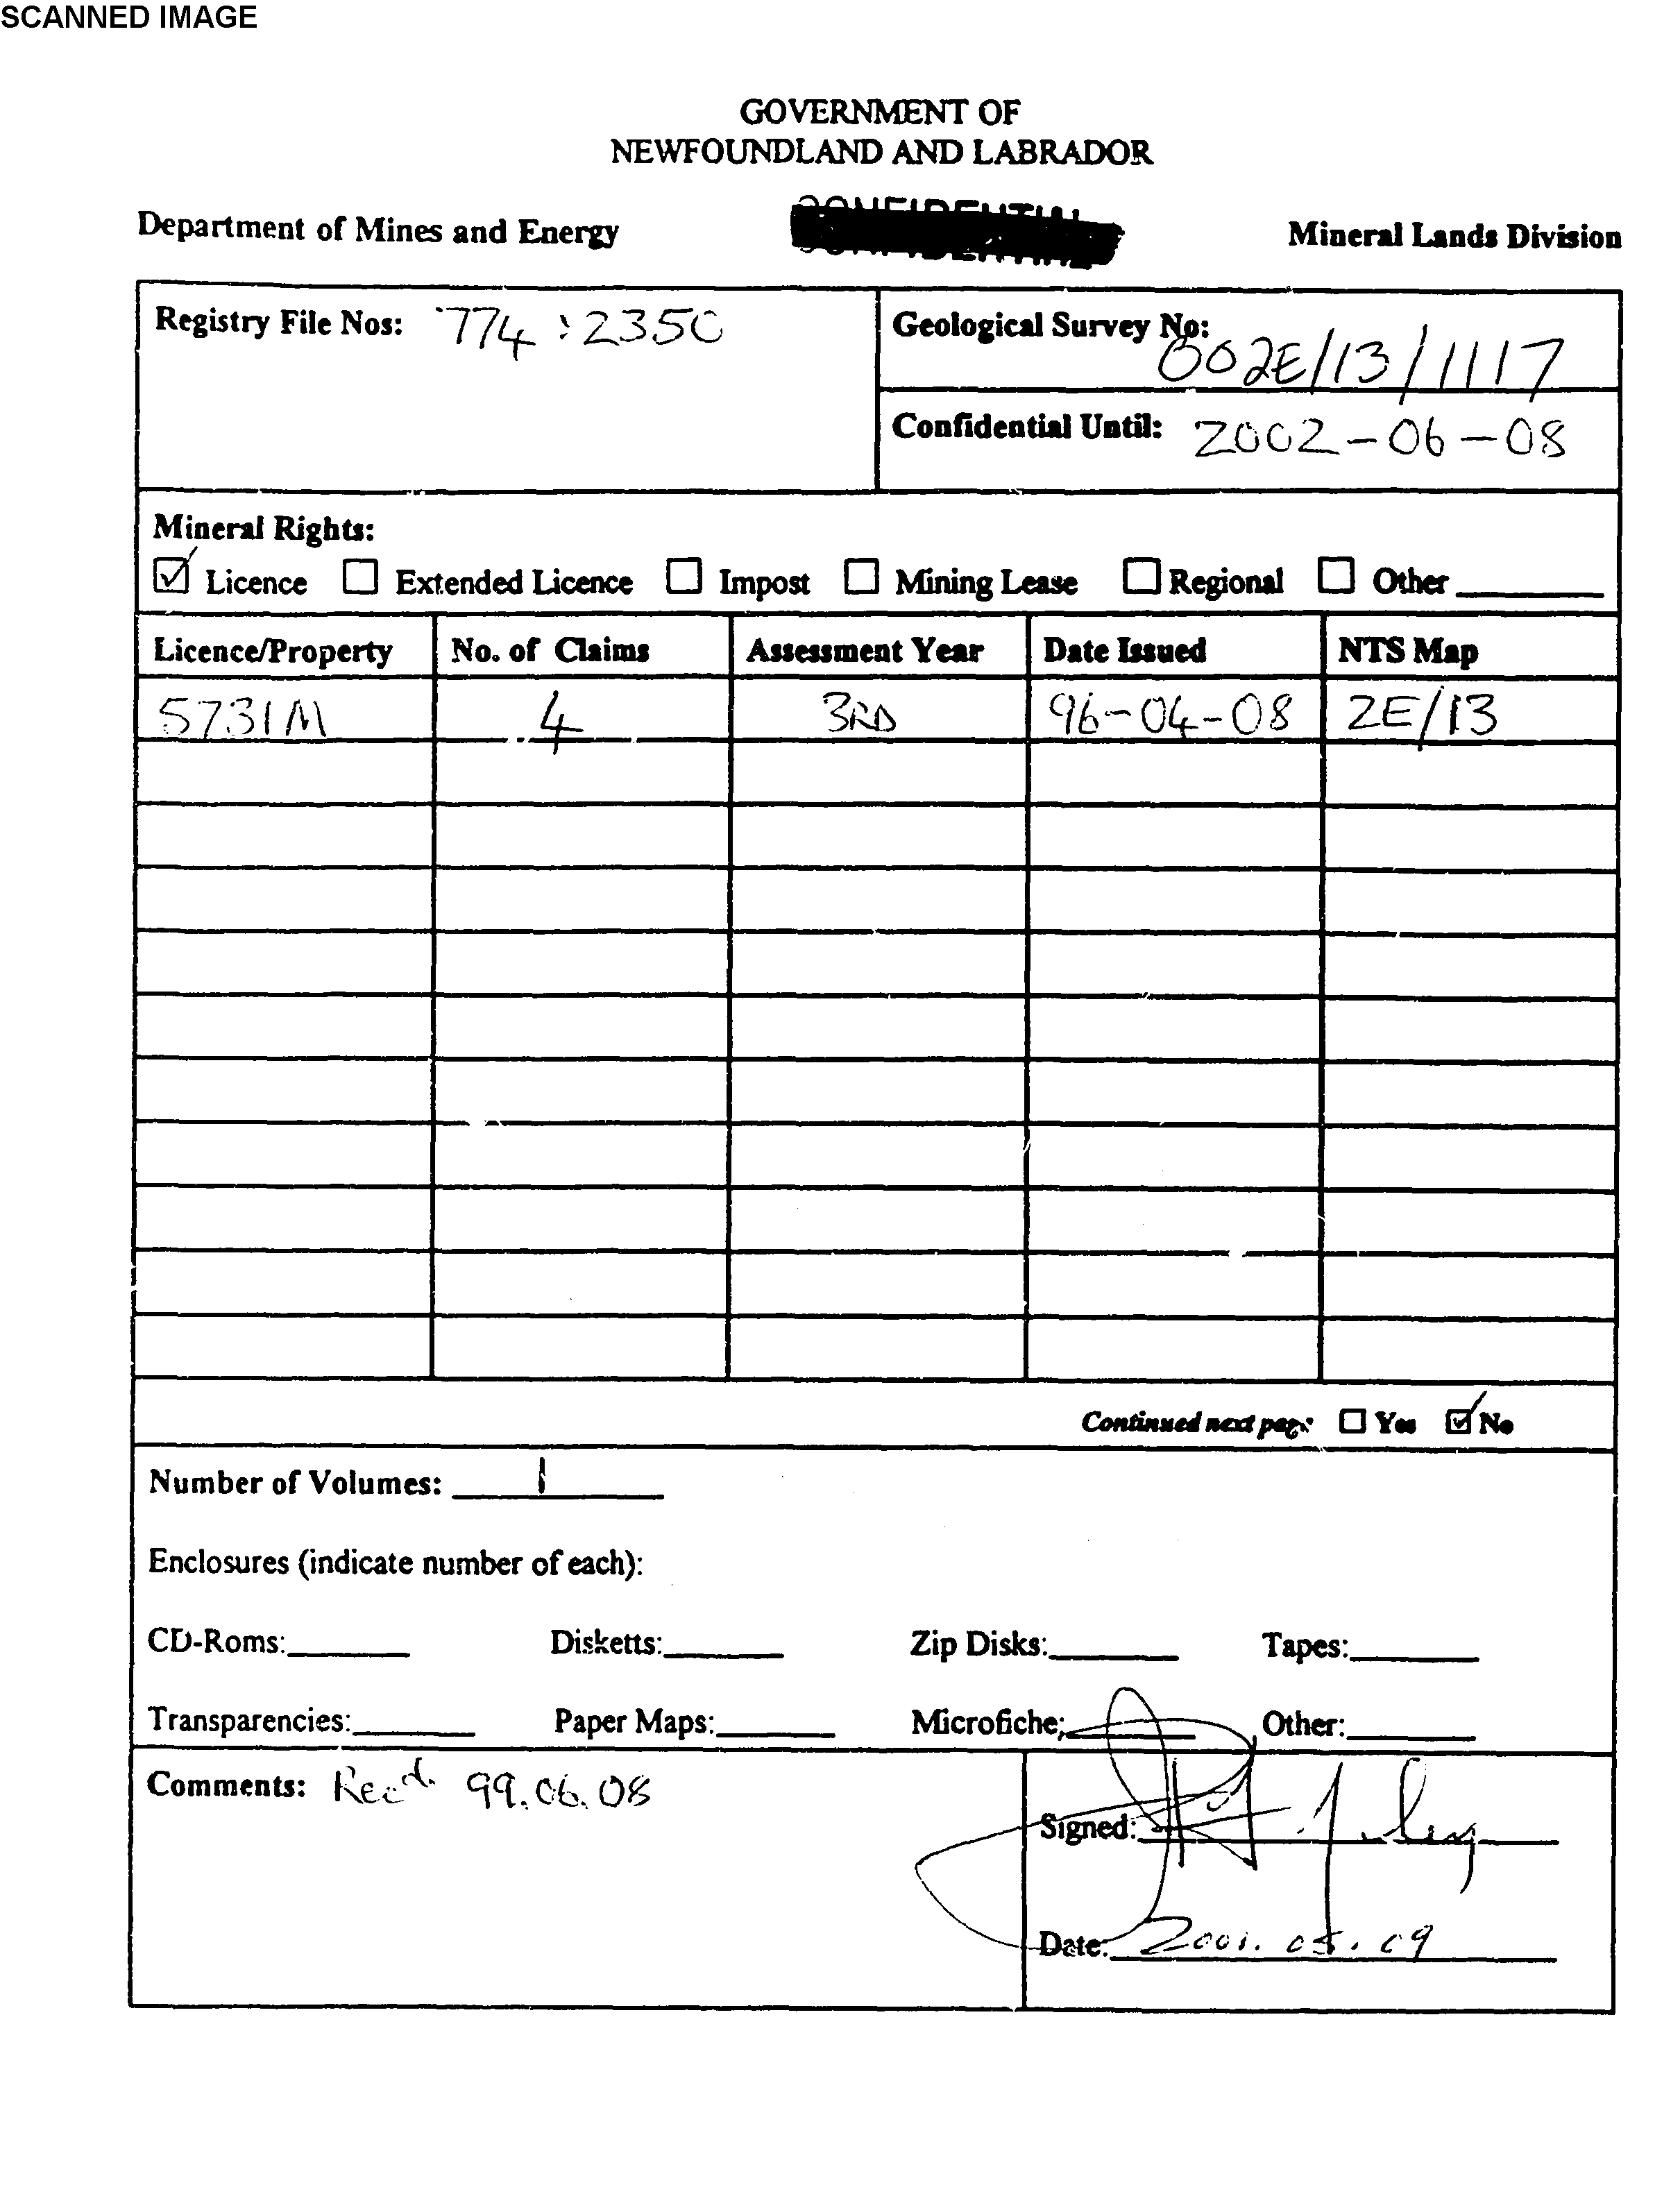 SCANNED IMAGE
GOVERNMENT OF
NEWFOUNDLAND AND LABRADOR
Department of Mines and Energy Mineral Lands Division
Registry File Nos: 774:2350
Geological Survey No:
002E/13/1117
Confidential Until: 2002-06-08
Mineral Rights:
Licence Extended Licence Impost Mining Lease Regional Other
Licence/Property No. of Claims Assessment Year Date Issued NTS Map
5731M 4 3RD 96-04-08 2E/13
Continued next page: Yes No
Number of Volumes: 1
Enclosures (indicate number of each):
CD-Roms: Disketts: Zip Disks: Tapes:
Transparencies: Paper Maps: Microfiche: Other:
Comments: Rec'd. 99.06.08
Signed:
Date: 2001.05.09